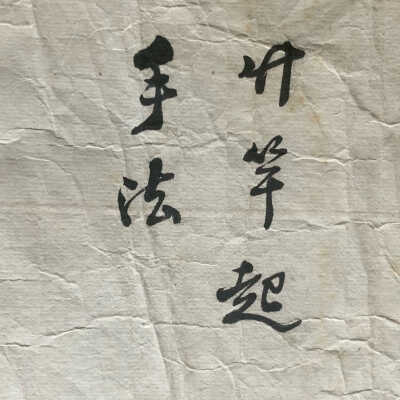 竹竿起
手法